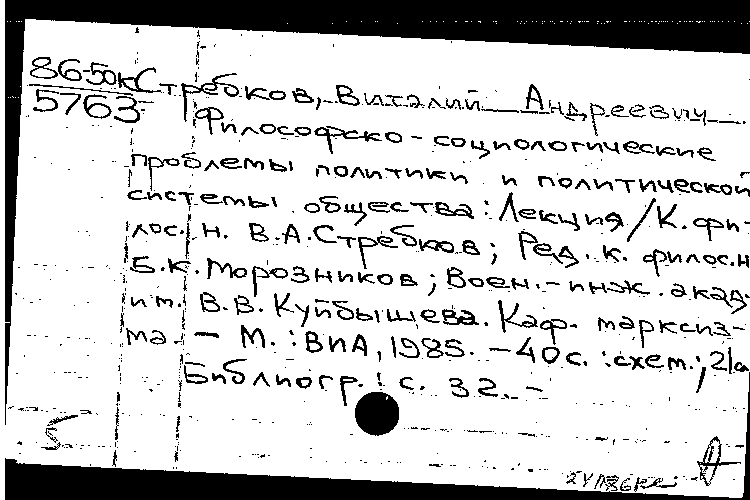 86-50к Стребков, Виталий Андреевич.
5763
Философско-социологические
проблемы политики и политической
системы общества: Лекция / К. фи-
лос. н. В.А. Стребков; Ред. к. филос. н
Б.К. Морозников; Воен.-инж. акад.
им. В.В. Куйбышева. Каф. марксиз-
ма. — М. : ВИА, 1985. — 40 с. : схем.; 21
Библиогр.: с. 32. —
5